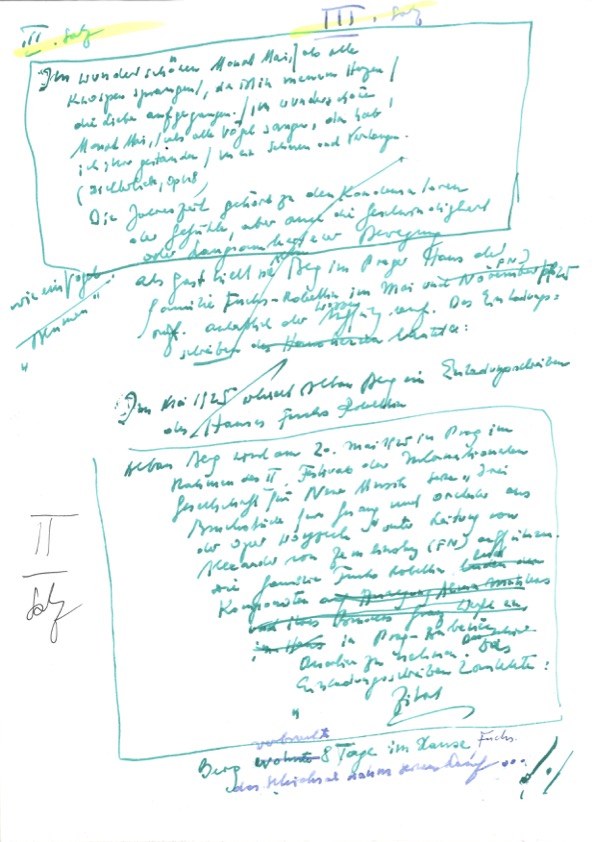 III. Satz
III. Satz
"Im wunderschönen Monat Mai,/als alle
Knospen sprangen/, da ist in meinem Herzen/
die Liebe aufgegangen./Im wunderschönen
Monat Mai,/als alle Vögel sangen, da hab'
ich ihr gestanden/mein Sehnen und Verlangen.
(Dichterliebe, Op 48)
Die Jahreszeit gehört zu den
der Gefühle, aber auch die Geschwindigkeit
oder Langsamkeit einer Bewegung
wie ein Vogel
als Gast hielt sich Berg im Prager Haus der
(FN)
Familie Fuchs-Robettin im Mai und November 1925
auf. anlässlich der auf. Das Einladungs-
schreiben des lautete:
Im Mai 1925 Alban Berg ein Einladungsschreiben
des Hauses Fuchs Robettin
Alban Berg wird am 20. Mai 1925 in Prag im
Rahmen des III. Festivals der Internationalen
Gesellschaft für Neue Musik seine "Drei
Bruchstücke für Gesang und Orchester aus
der Oper Wozzeck" unter Leitung von
Alexander von Zemlinsky (FN) aufführen.
Die Familie Fuchs Robettin
Komponisten
und ihres Bruders Franz Werfel aus
im Haus in Prag-Bubeneč
zu nehmen. Das
Einladungsschreiben lautete:
Zitat
"
II
Satz
verbrachte
Berg wohnte 8 Tage im Hause Fuchs.
das Schicksal nahm seinen Lauf ...